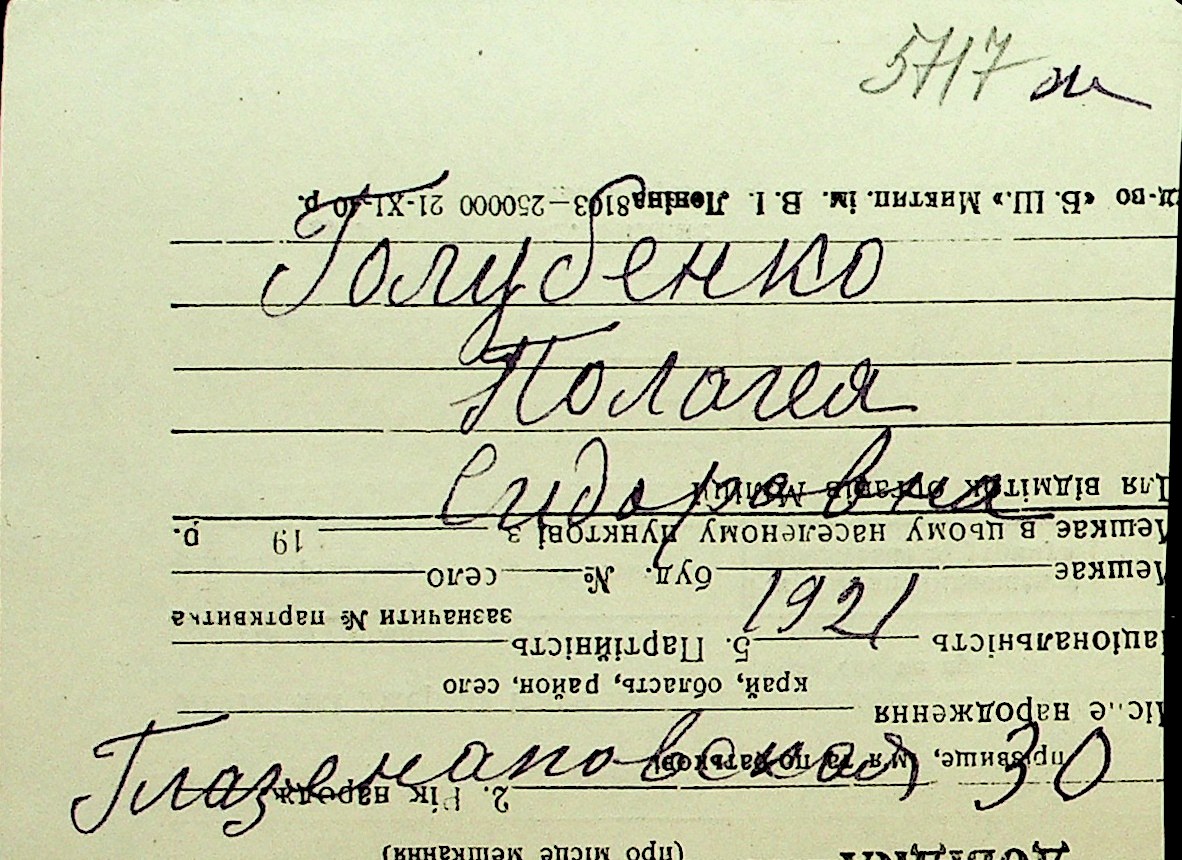 5717 ж
Голубенко
Пологея
Сидоровна
1921
Глазенаповская, 30
ДОВІДКА
(про місце мешкання)
2. Рік народж
прізвище, ім'я та по батькові
народження
край, область, район, село
Національність 5. Партійність
зазначити № партквитка
Мешкає буд. № село
Мешкає в цьому населеному пунктові з 19 р.
Для відміток органів Міліції
«Б. Ш.» Миктип. ім. В. І. Леніна 8103—250000 21-XI-40 р.